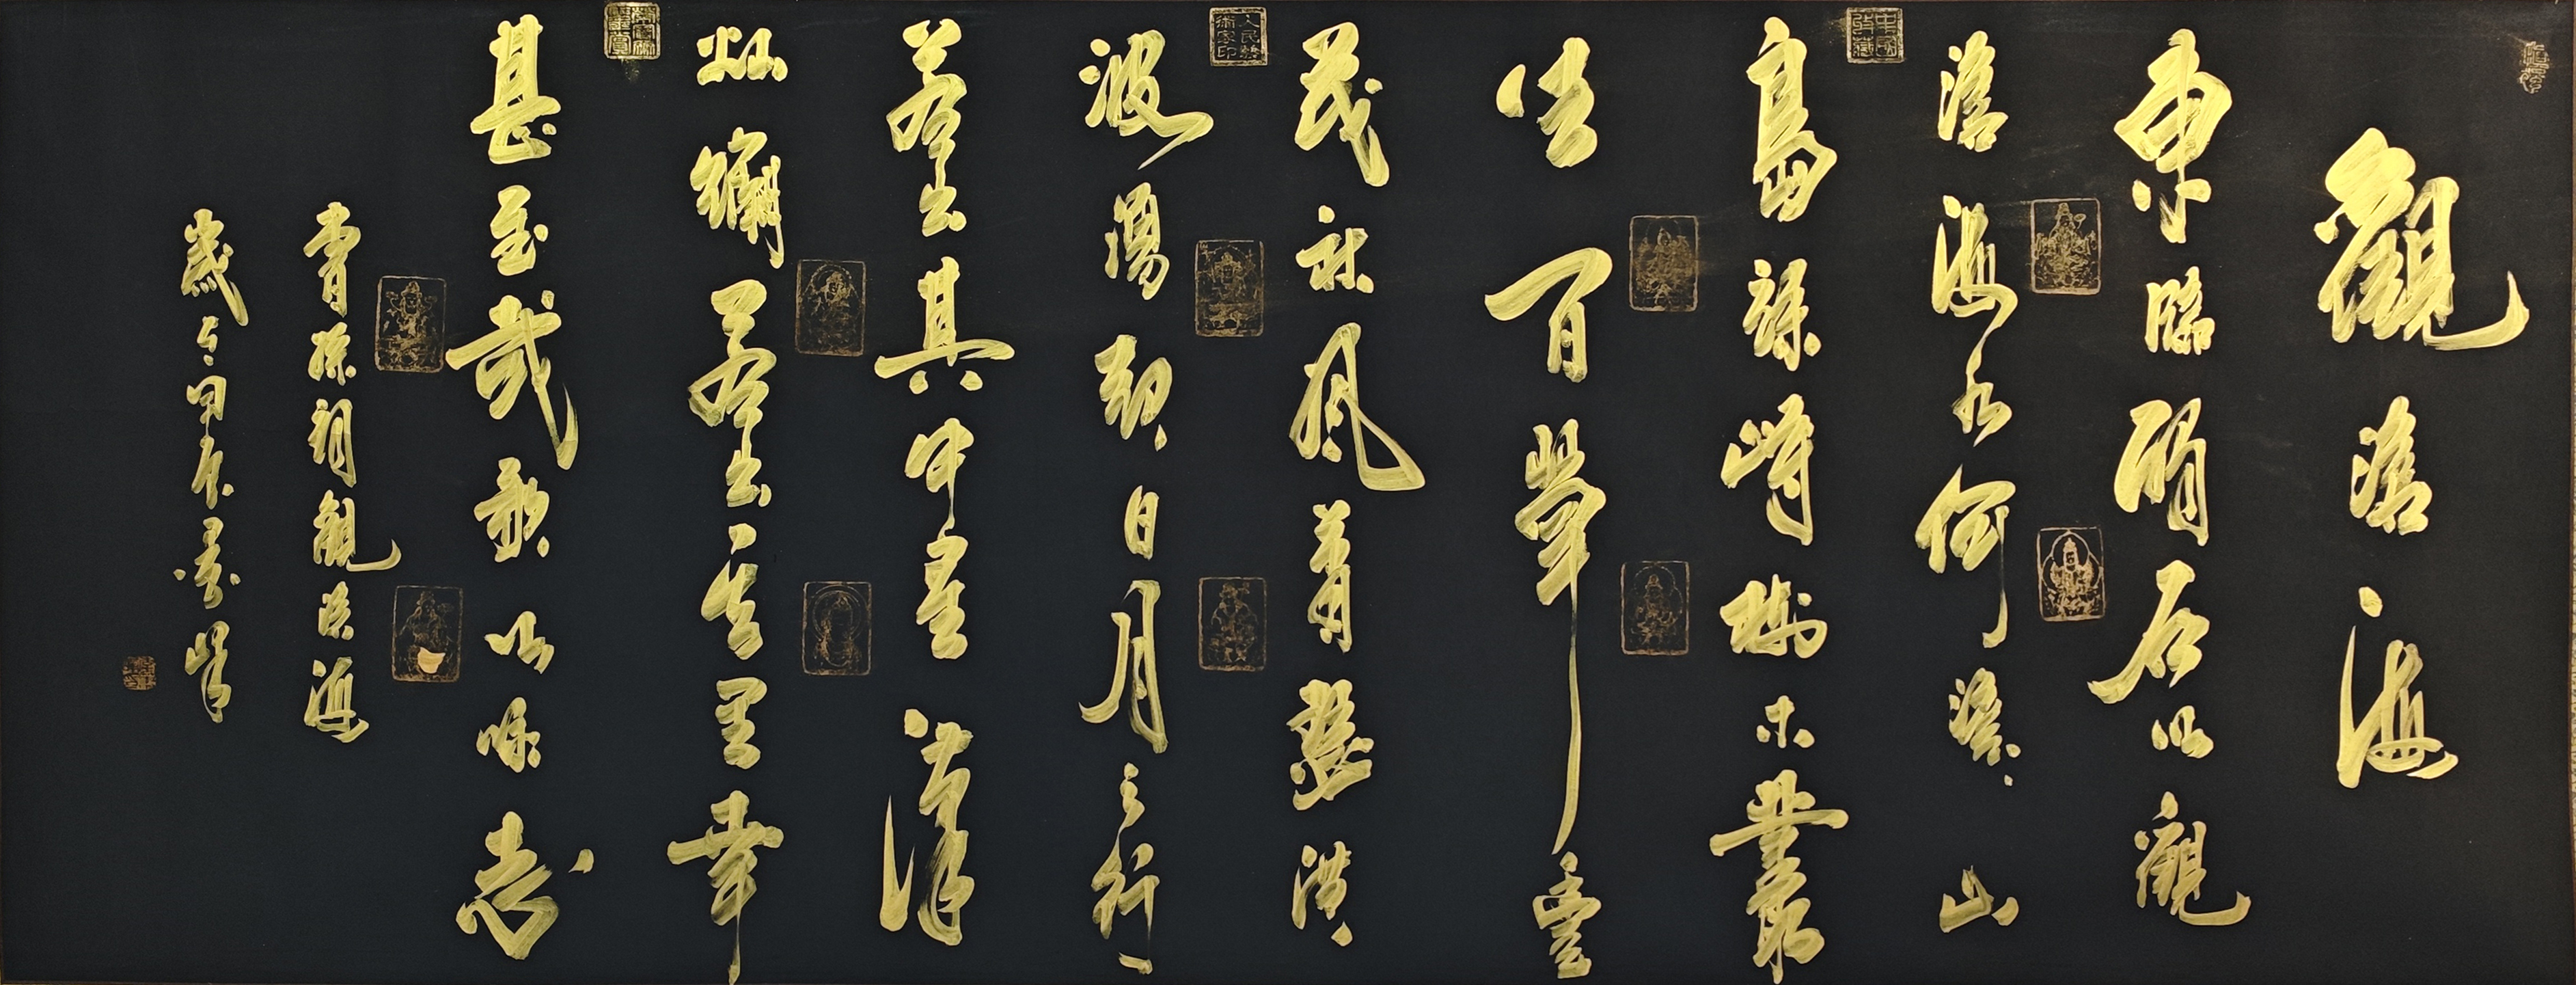 觀滄海
東臨碣石以觀
滄海水何澹澹山
島竦峙樹木叢
生百草豐
茂秋風蕭瑟洪
波湧起日月之行
若出其中星漢
燦爛若出其里幸
甚至哉歌以詠志
曹操詞觀滄海
歲
人民藝術家印